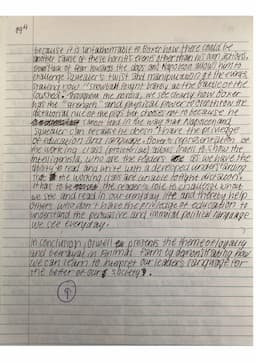 because it is unfathomable to Boxer how there could be
another cause of these horrible events other than his own actions,
Boxer's lack of fear towards the dogs and Napoleon allows him to
challenge Squealer's twist and manipulation of the events
saying how "Snowball fought bravely at the Battle of the
Cowshed". Throughout the novella, we see clearly how Boxer
has the "strength" and physical power to overthrow the
dictatorial rule of the pigs but chooses not to because he
cannot lead in the way that Napoleon and
Squealer can because he doesn't have the privilege
of education and language. Boxer's representation of
the working class (proletariat) allows Orwell to show the
intelligentsia, who are the readers as we have the
ability to read and write with a developed understanding
that the working class are unable to fight and
it has to be the reader's role to challenge what
we see and read in our everyday life and thereby help
others who don't have the privilege of education to
understand the persuasive and political language we
see everyday.
In conclusion, Orwell presents the theme of loyalty
and betrayal in Animal Farm by demonstrating how
we can learn to interpret our leaders language for
the better of our society.